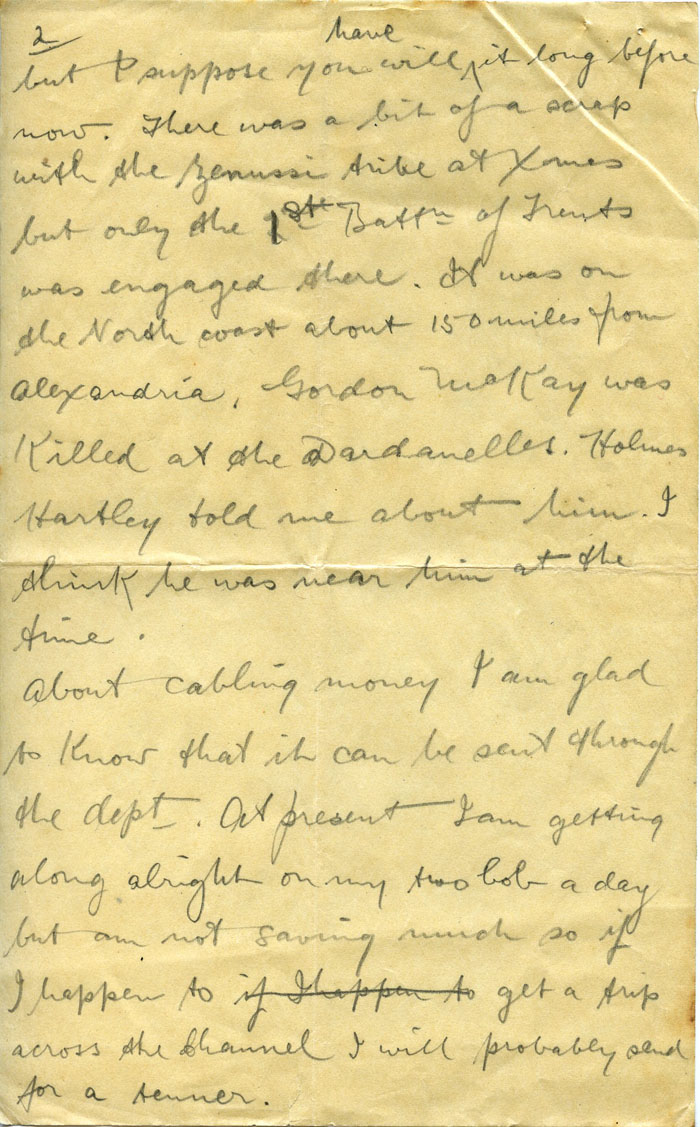 2
have
but I suppose you will ^ it long before
now. There was a bit of a scrap
with the Zenussi tribe at Xmas
but only the 1st Battn of Trents
was engaged there. It was on
the North coast about 150 miles from
Alexandria, Gordon McKay was
Killed at the Dardanelles. Holmes
Hartley told me about him. I
think he was near him at the
time.
About cabling money I am glad
to know that it can be sent through
the dept. At present I am getting
along alright on my two bob a day
but am not saving much so if
I happen to if I happen to get a trip
across the Channel I will probably send
for a tenner.